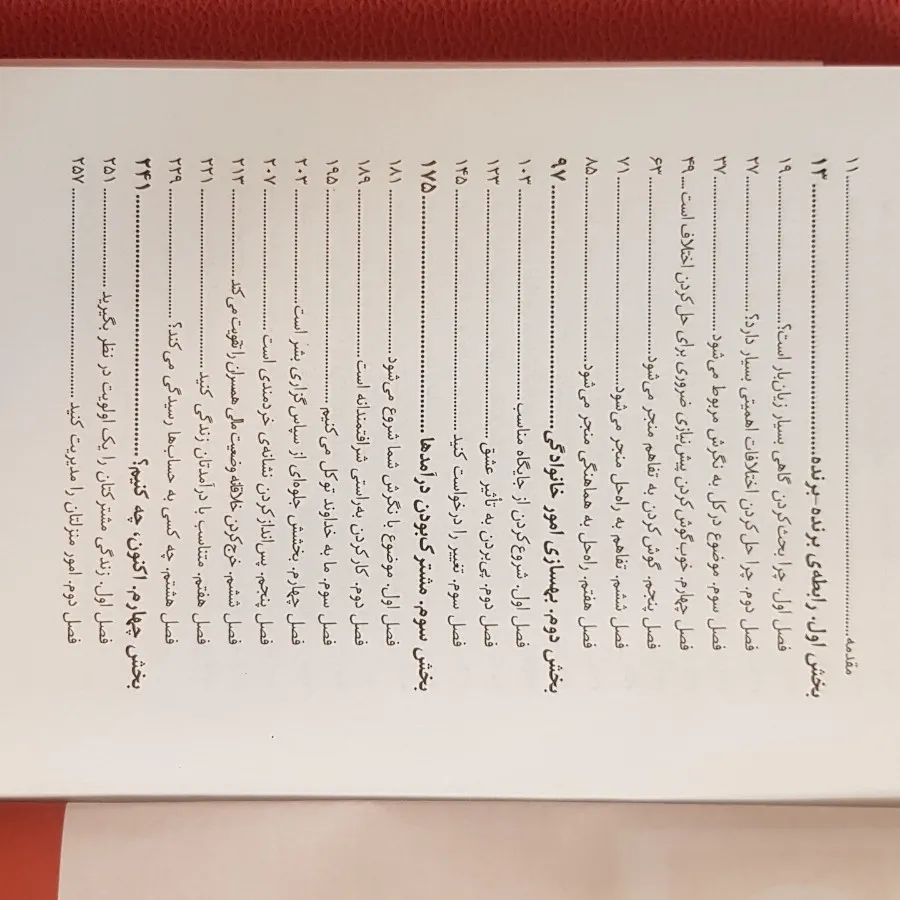 مقدمه ........ ۱۱
بخش اول. رابطه‌ی برنده-برنده ........ ۱۳
فصل اول. چرا بحث‌کردن گاهی بسیار زیان‌بار است؟ ........ ۱۹
فصل دوم. چرا حل‌کردن اختلافات اهمیتی بسیار دارد؟ ........ ۲۷
فصل سوم. موضوع درکل به نگرش مربوط می‌شود ........ ۳۷
فصل چهارم. خوب‌گوش‌کردن پیش‌نیازی ضروری برای حل‌کردن اختلاف است ... ۴۹
فصل پنجم. گوش‌کردن به تفاهم منجر می‌شود ........ ۶۳
فصل ششم. تفاهم به راه‌حل منجر می‌شود ........ ۷۱
فصل هفتم. راه‌حل به هماهنگی منجر می‌شود ........ ۸۵
بخش دوم. بهسازی امور خانوادگی ........ ۹۷
فصل اول. شروع‌کردن از جایگاه مناسب ........ ۱۰۳
فصل دوم. پی‌بردن به تأثیر عشق ........ ۱۲۳
فصل سوم. تغییر را درخواست کنید ........ ۱۴۵
بخش سوم. مشترک‌بودن درآمدها ........ ۱۷۵
فصل اول. موضوع با نگرش شما شروع می‌شود ........ ۱۸۱
فصل دوم. کارکردن به‌راستی شرافتمندانه است ........ ۱۸۹
فصل سوم. ما به خداوند توکل می‌کنیم ........ ۱۹۵
فصل چهارم. بخشش جلوه‌ای از سپاس‌گزاری بشر است ........ ۲۰۳
فصل پنجم. پس‌اندازکردن نشانه‌ی خردمندی است ........ ۲۰۷
فصل ششم. خرج‌کردن خلاقانه وضعیت مالی همسران را تقویت می‌کند ........ ۲۱۳
فصل هفتم. متناسب با درآمدتان زندگی کنید ........ ۲۲۱
فصل هشتم. چه کسی به حساب‌ها رسیدگی می‌کند؟ ........ ۲۲۹
بخش چهارم. اکنون، چه کنیم؟ ........ ۲۴۱
فصل اول. زندگی مشترکتان را یک اولویت در نظر بگیرید ........ ۲۵۱
فصل دوم. امور منزلتان را مدیریت کنید ........ ۲۵۷